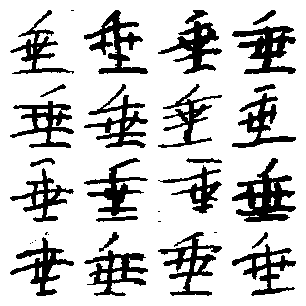 垂垂垂垂
垂垂垂垂
垂垂垂垂
垂垂垂垂